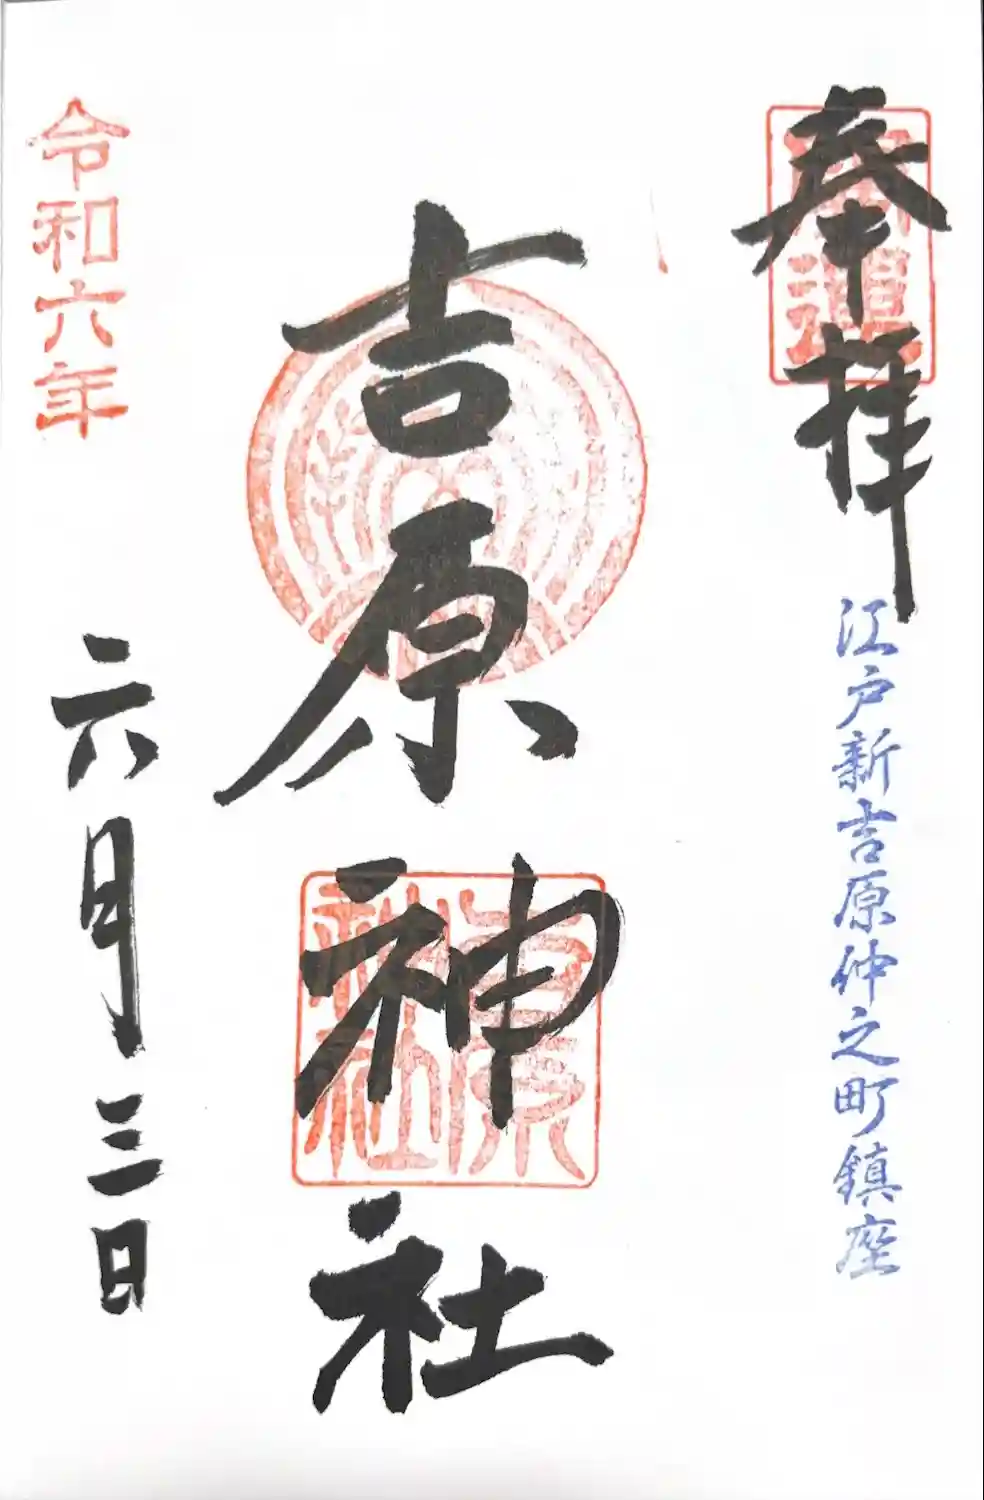 奉拝
開運
江戸新吉原仲之町鎮座
吉原神社
吉原
神社
令和六年
六月三日